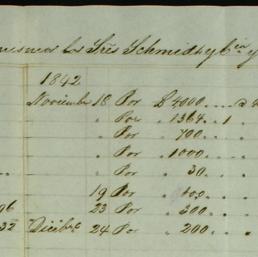 Sres Schmidt y Cia y
1842
Noviembre 18 Por $ 4000
" Por " 1364 " 1
" Por " 700 "
" Por " 1000
" Por " 30 "
19 Por " 100
96 23 Por " 300
32 Dicbre 24 Por " 200